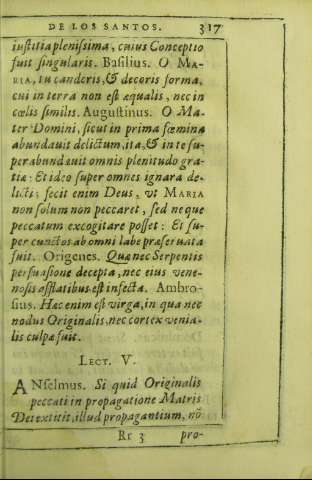 DE LOS SANTOS. 317
iustitia plenissima, cuius Conceptio
fuit singularis. Basilius. O MA-
RIA, tu candoris, & decoris forma,
cui in terra non est æqualis, nec in
cœlis similis. Augustinus. O Ma-
ter Domini, sicut in prima fœmina
abundauit delictum, ita, & in te su-
perabundauit omnis plenitudo gra-
tiæ: Et ideo super omnes ignara de-
licti; fecit enim Deus, vt MARIA
non solum non peccaret, sed neque
peccatum excogitare posset: Et su-
per cunctos ab omni labe præseruata
fuit. Origenes. Quæ nec Serpentis
persuasione decepta, nec eius vene-
nosis afflatibus est infecta. Ambro-
sius. Hæc enim est virga, in qua nec
nodus Originalis, nec cortex venia-
lis culpæ fuit.
LECT. V.
ANselmus. Si quid Originalis
peccati in propagatione Matris
Dei extitit, illud propagantium, nō
Rr 3 pro-